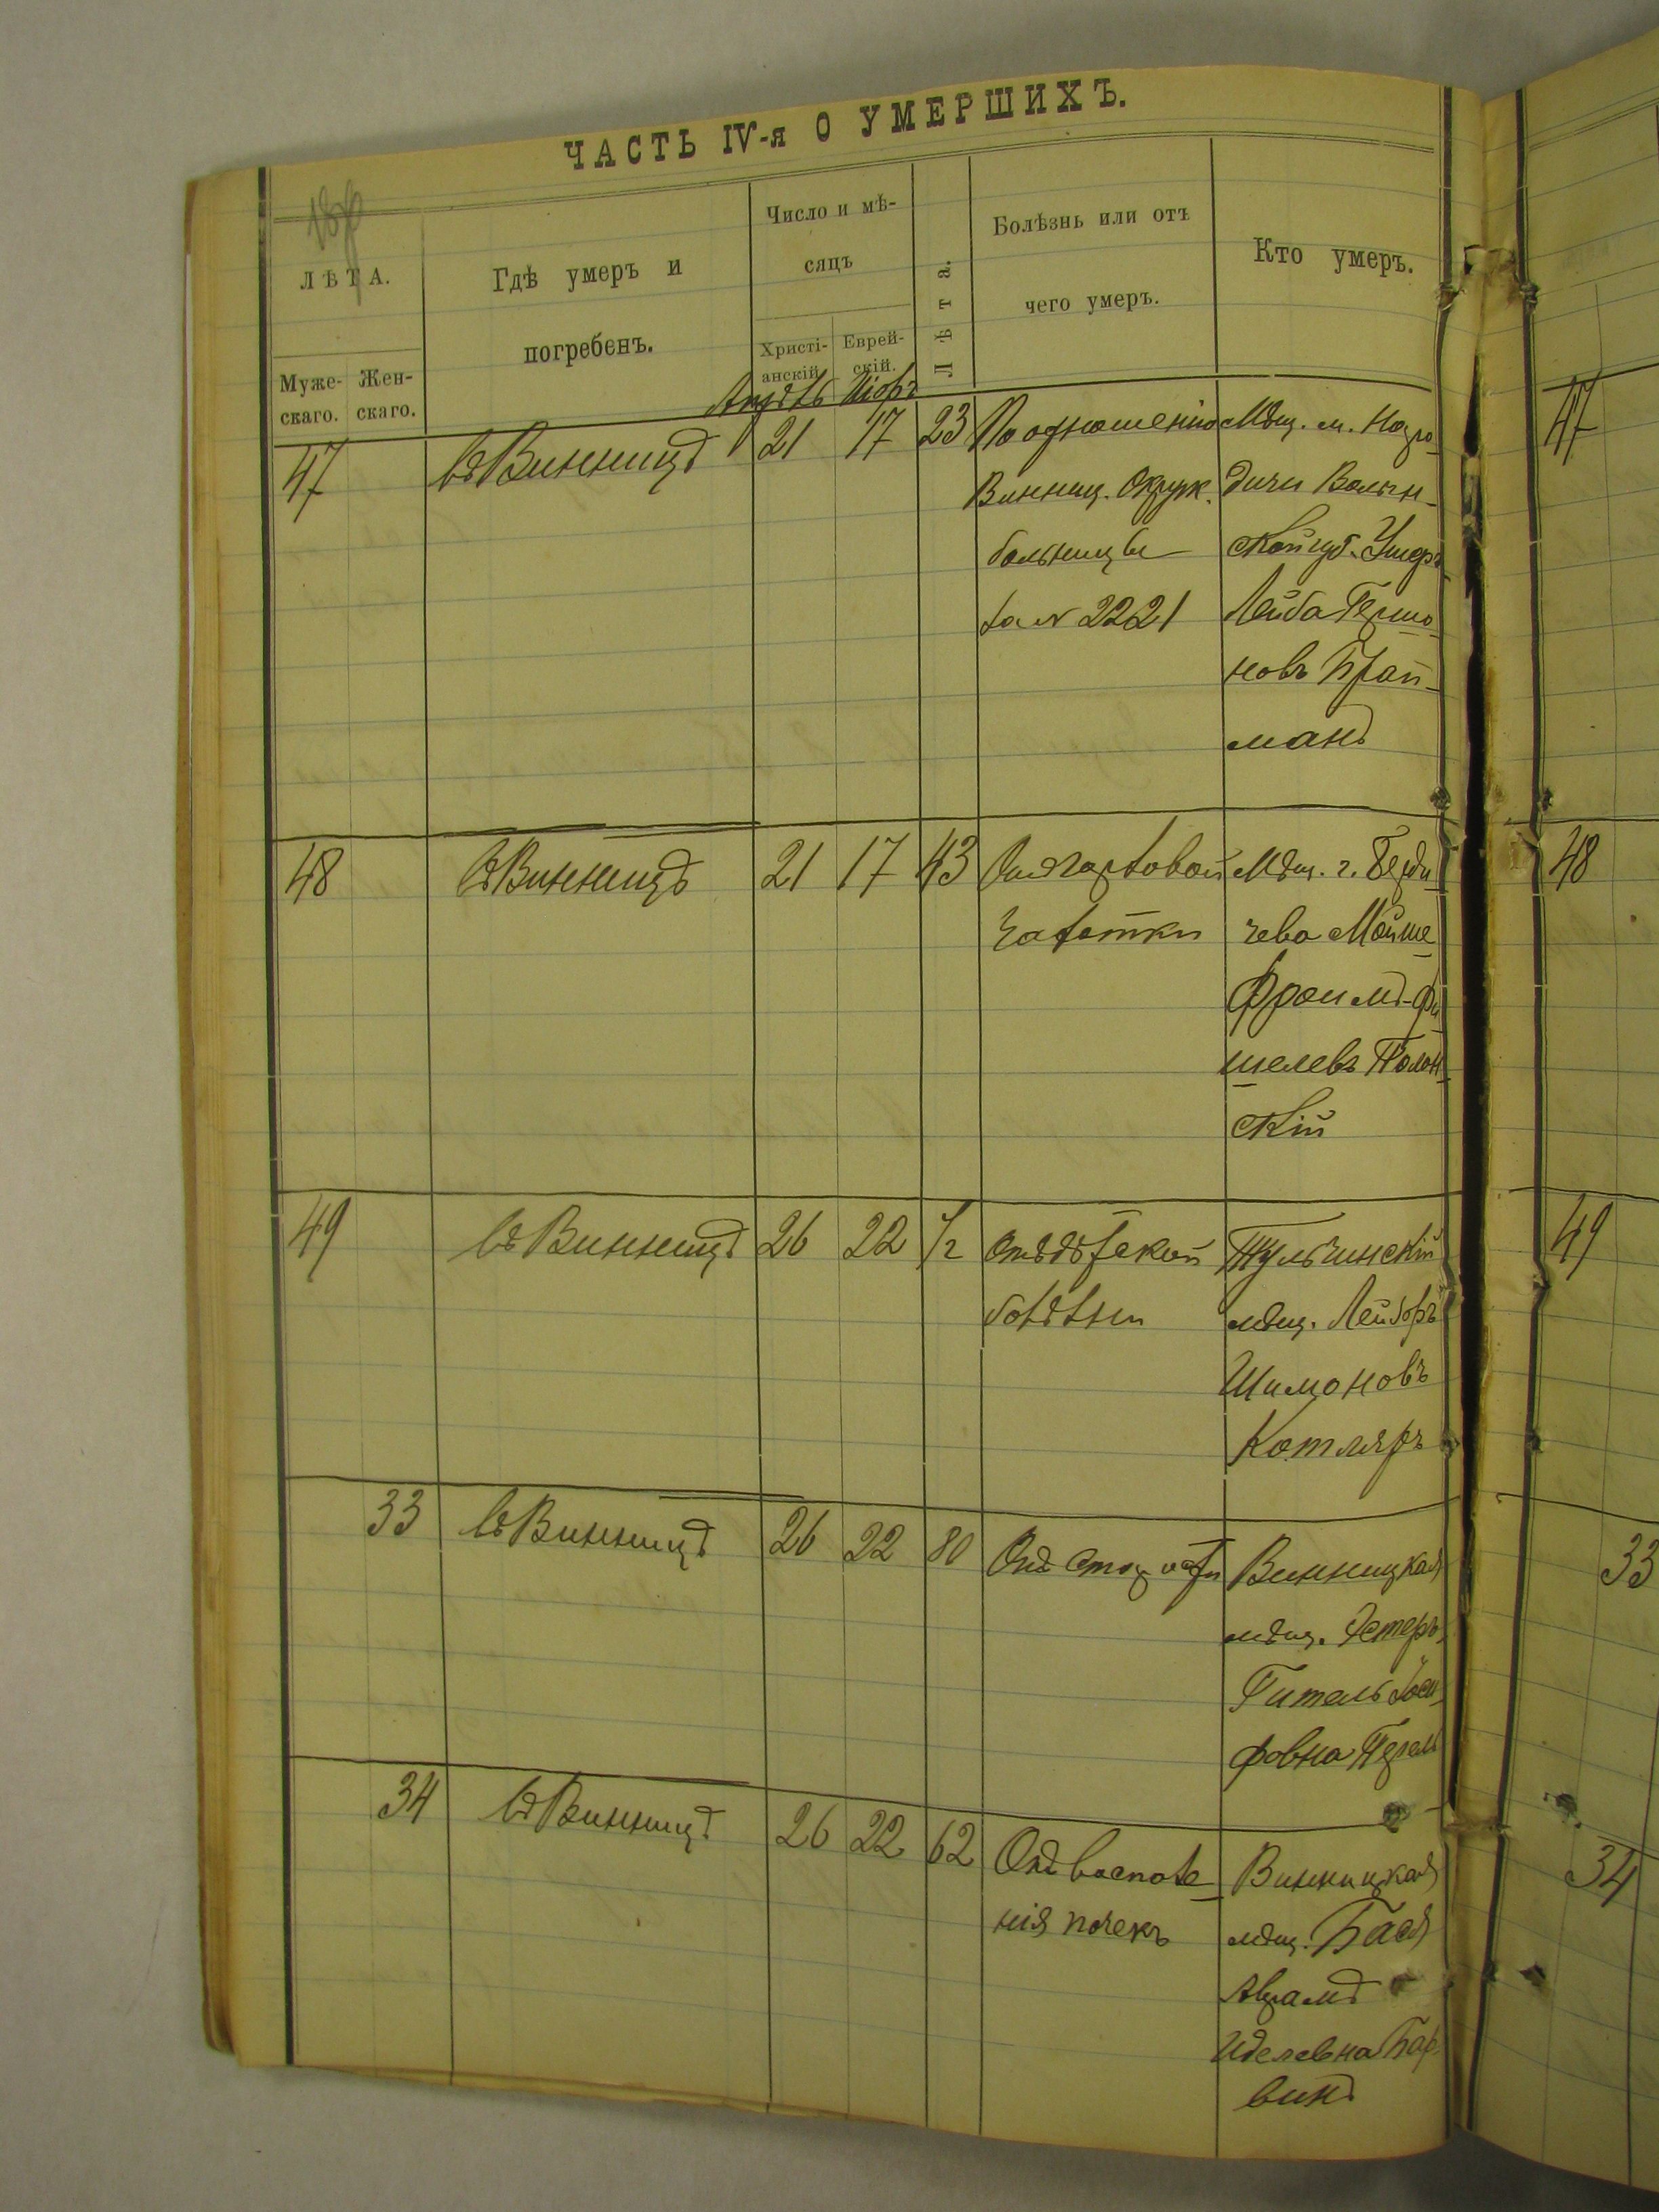 ЧАСТЬ IV-я О УМЕРШИХЪ.
ЛѢТА.
Муже-
скаго.
Жен-
скаго.
Гдѣ умеръ и
погребенъ.
Число и мѣ-
сяцъ
Христі-
анскій
Еврей-
скій.
Апрѣль Ніоръ
Лѣта.
Болѣзнь или отъ
чего умеръ.
Кто умеръ.
47 въ Винницѣ 21 17 23
По отношенію
Винниц. Окруж.
больницы
за № 2221
Мѣщ. м.
дичи Волын-
ской губ. Ушеръ
Лейба Гершо-
новъ Брай-
манъ
48 въ Винницѣ 21 17 43
Отъ горловой
чахотки
Мѣщ. г. Берди-
чева Мойше
Фроимъ-Фи-
шелевъ Полон-
скій
49 въ Винницѣ 26 22 1/2
Отъ дѣтской
болѣзни
Тульчинскій
мѣщ. Лейзоръ
Шимоновъ
Котляръ
33 въ Винницѣ 26 22 80
Отъ старости
Винницкая
мѣщ. Эстеръ-
Гитель Іоси-
фовна Перель
34 въ Винницѣ 26 22 62
Отъ воспале-
нія почекъ
Винницкая
мѣщ. Бася
Аврамъ
Иделевна Бар-
винъ
47
48
49
33
34